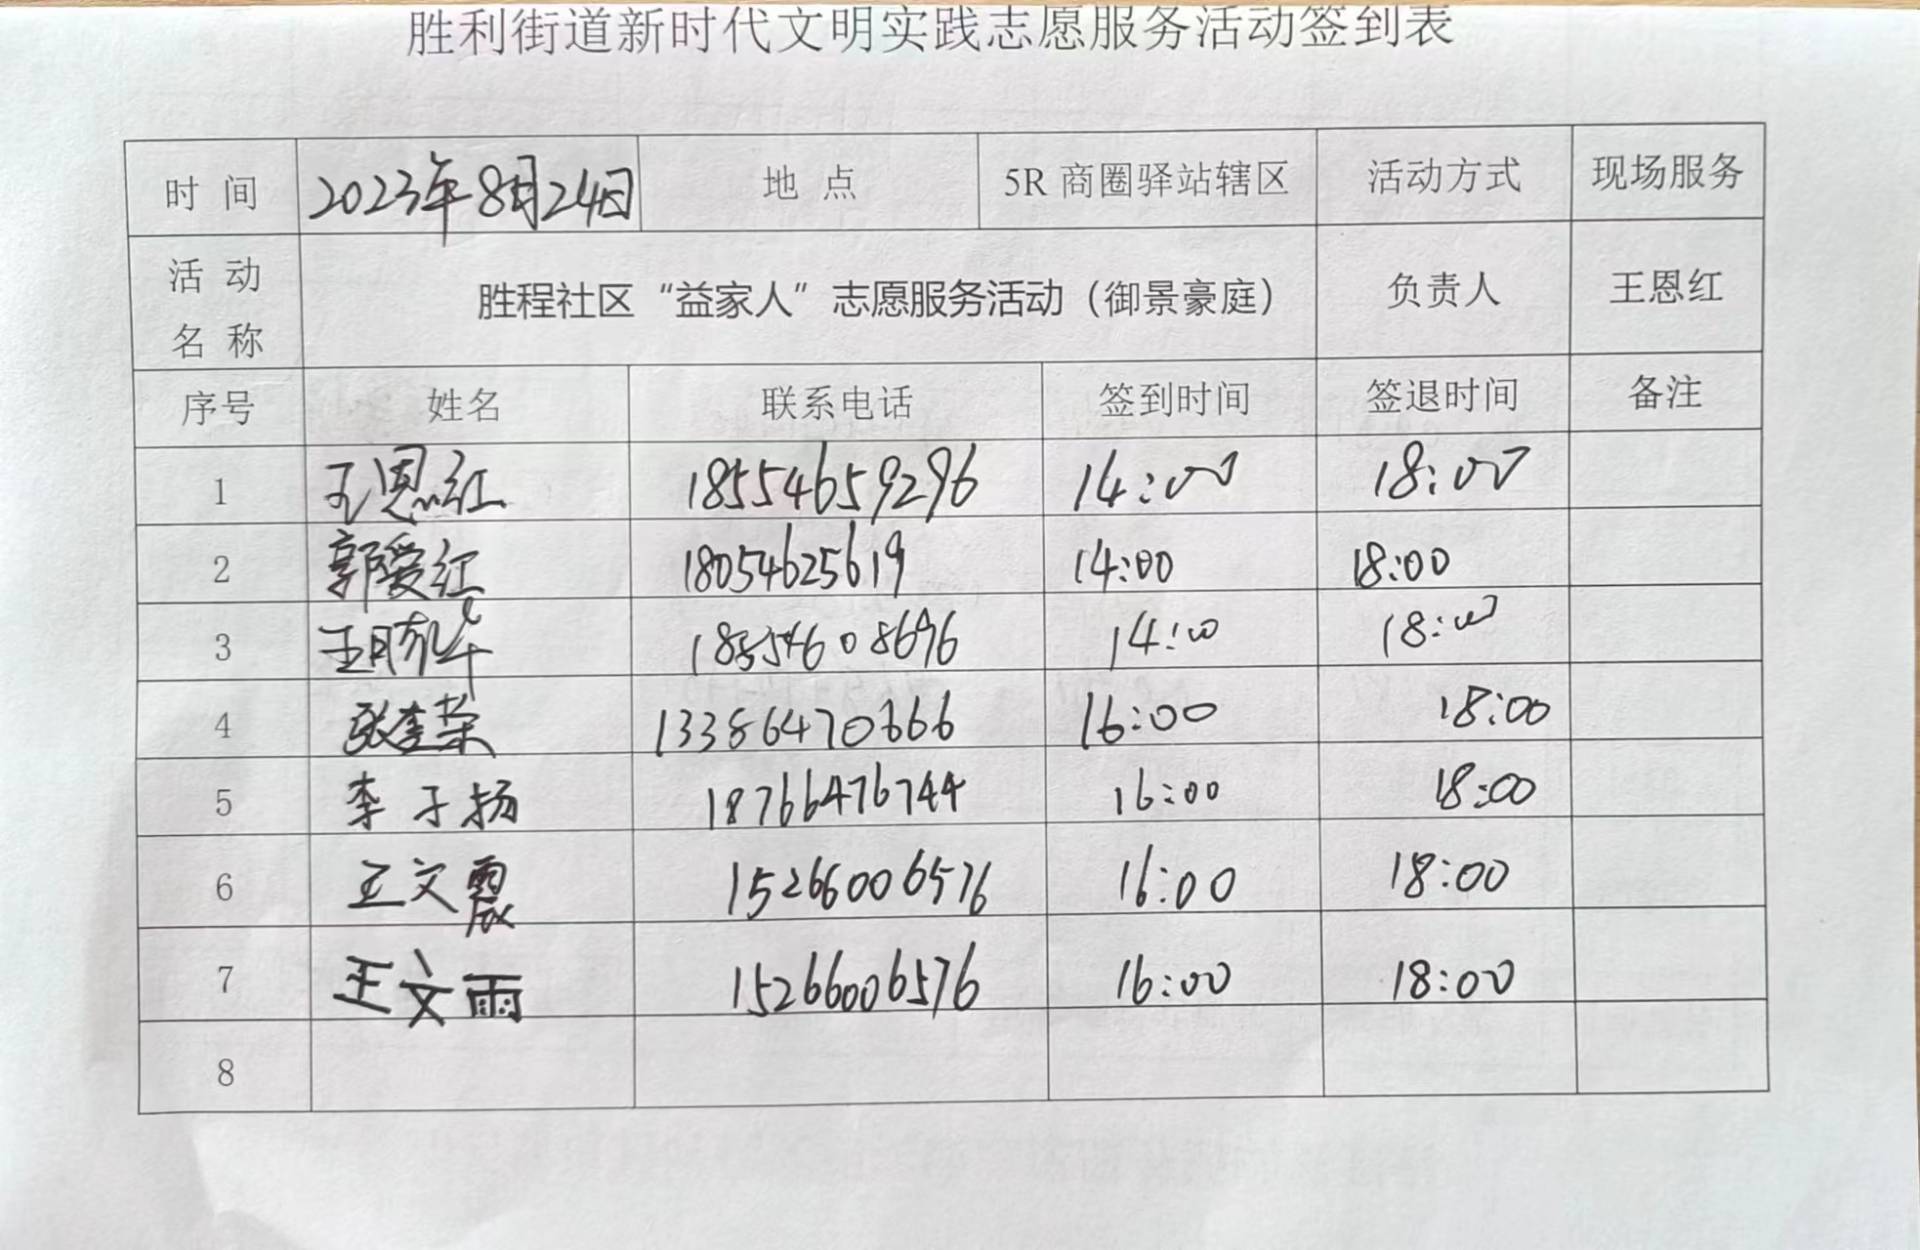 胜利街道新时代文明实践志愿服务活动签到表
时 间 2023年8月24日 地 点 5R 商圈驿站辖区 活动方式 现场服务
活 动 名 称 胜程社区“益家人”志愿服务活动（御景豪庭） 负责人 王恩红
序号 姓名 联系电话 签到时间 签退时间 备注
1 王恩红 18554659296 14:00 18:00
2 郭爱红 18054625619 14:00 18:00
3 18554608696 14:00 18:00
4 张奎荣 13386470666 16:00 18:00
5 李子扬 18766476744 16:00 18:00
6 王文震 15266006576 16:00 18:00
7 王文雨 15266006576 16:00 18:00
8